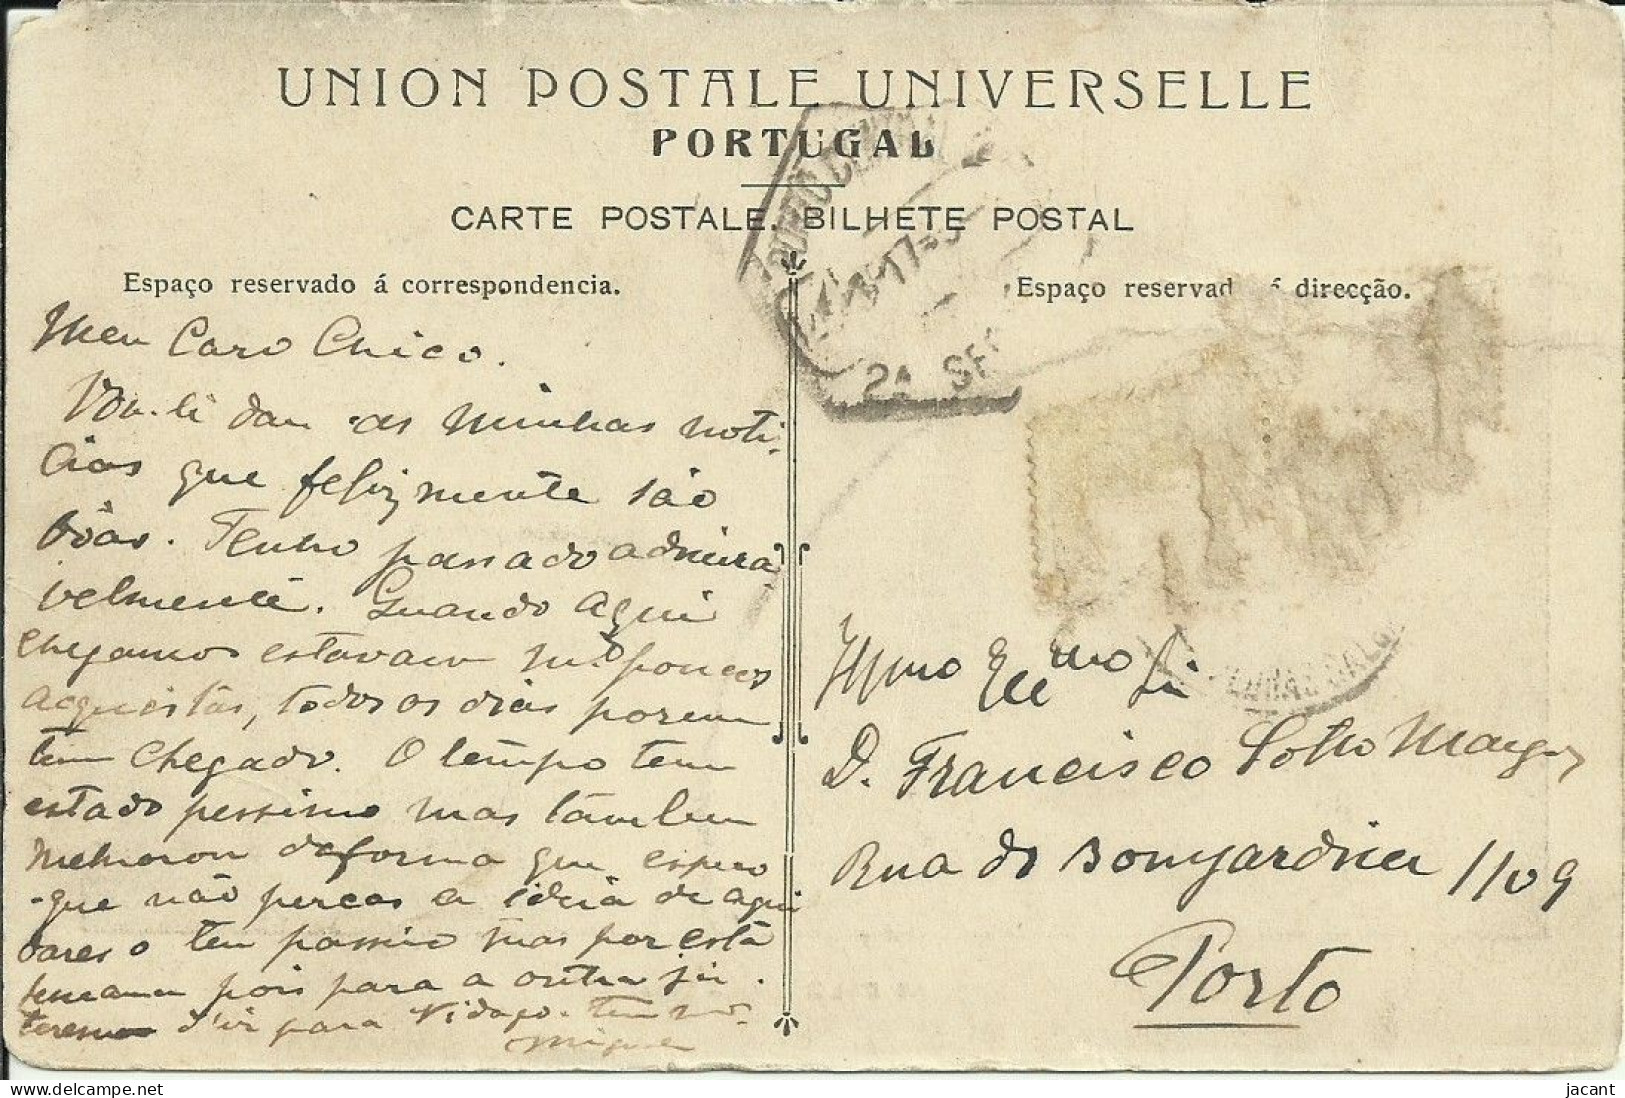 UNION POSTALE UNIVERSELLE
PORTUGAL
CARTE POSTALE. BILHETE POSTAL
Espaço reservado á correspondencia.
Meu Caro Chico.
Vou-te dar as minhas noti-
cias que felizmente são
bôas. Tenho passado admira-
velmente. Quando aqui
chegamos estavam m.to poucos
aquistas, todos os dias porem
tem chegado. O tempo tem
estado pessimo mas tambem
melhorou de forma que espero
que não percas a ideia de aqui
dares o teu passeio mas por esta
semana pois para a outra já
teremos d'ir para Vidago. Teu
Miguel
Espaço reservad á direcção.
Illmo Exmo Sr
D. Francisco Sotto Mayor
Rua do Bomjardim 1109
Porto
PORTO CENTRAL
24 SE
PEDRAS SALG
jacant